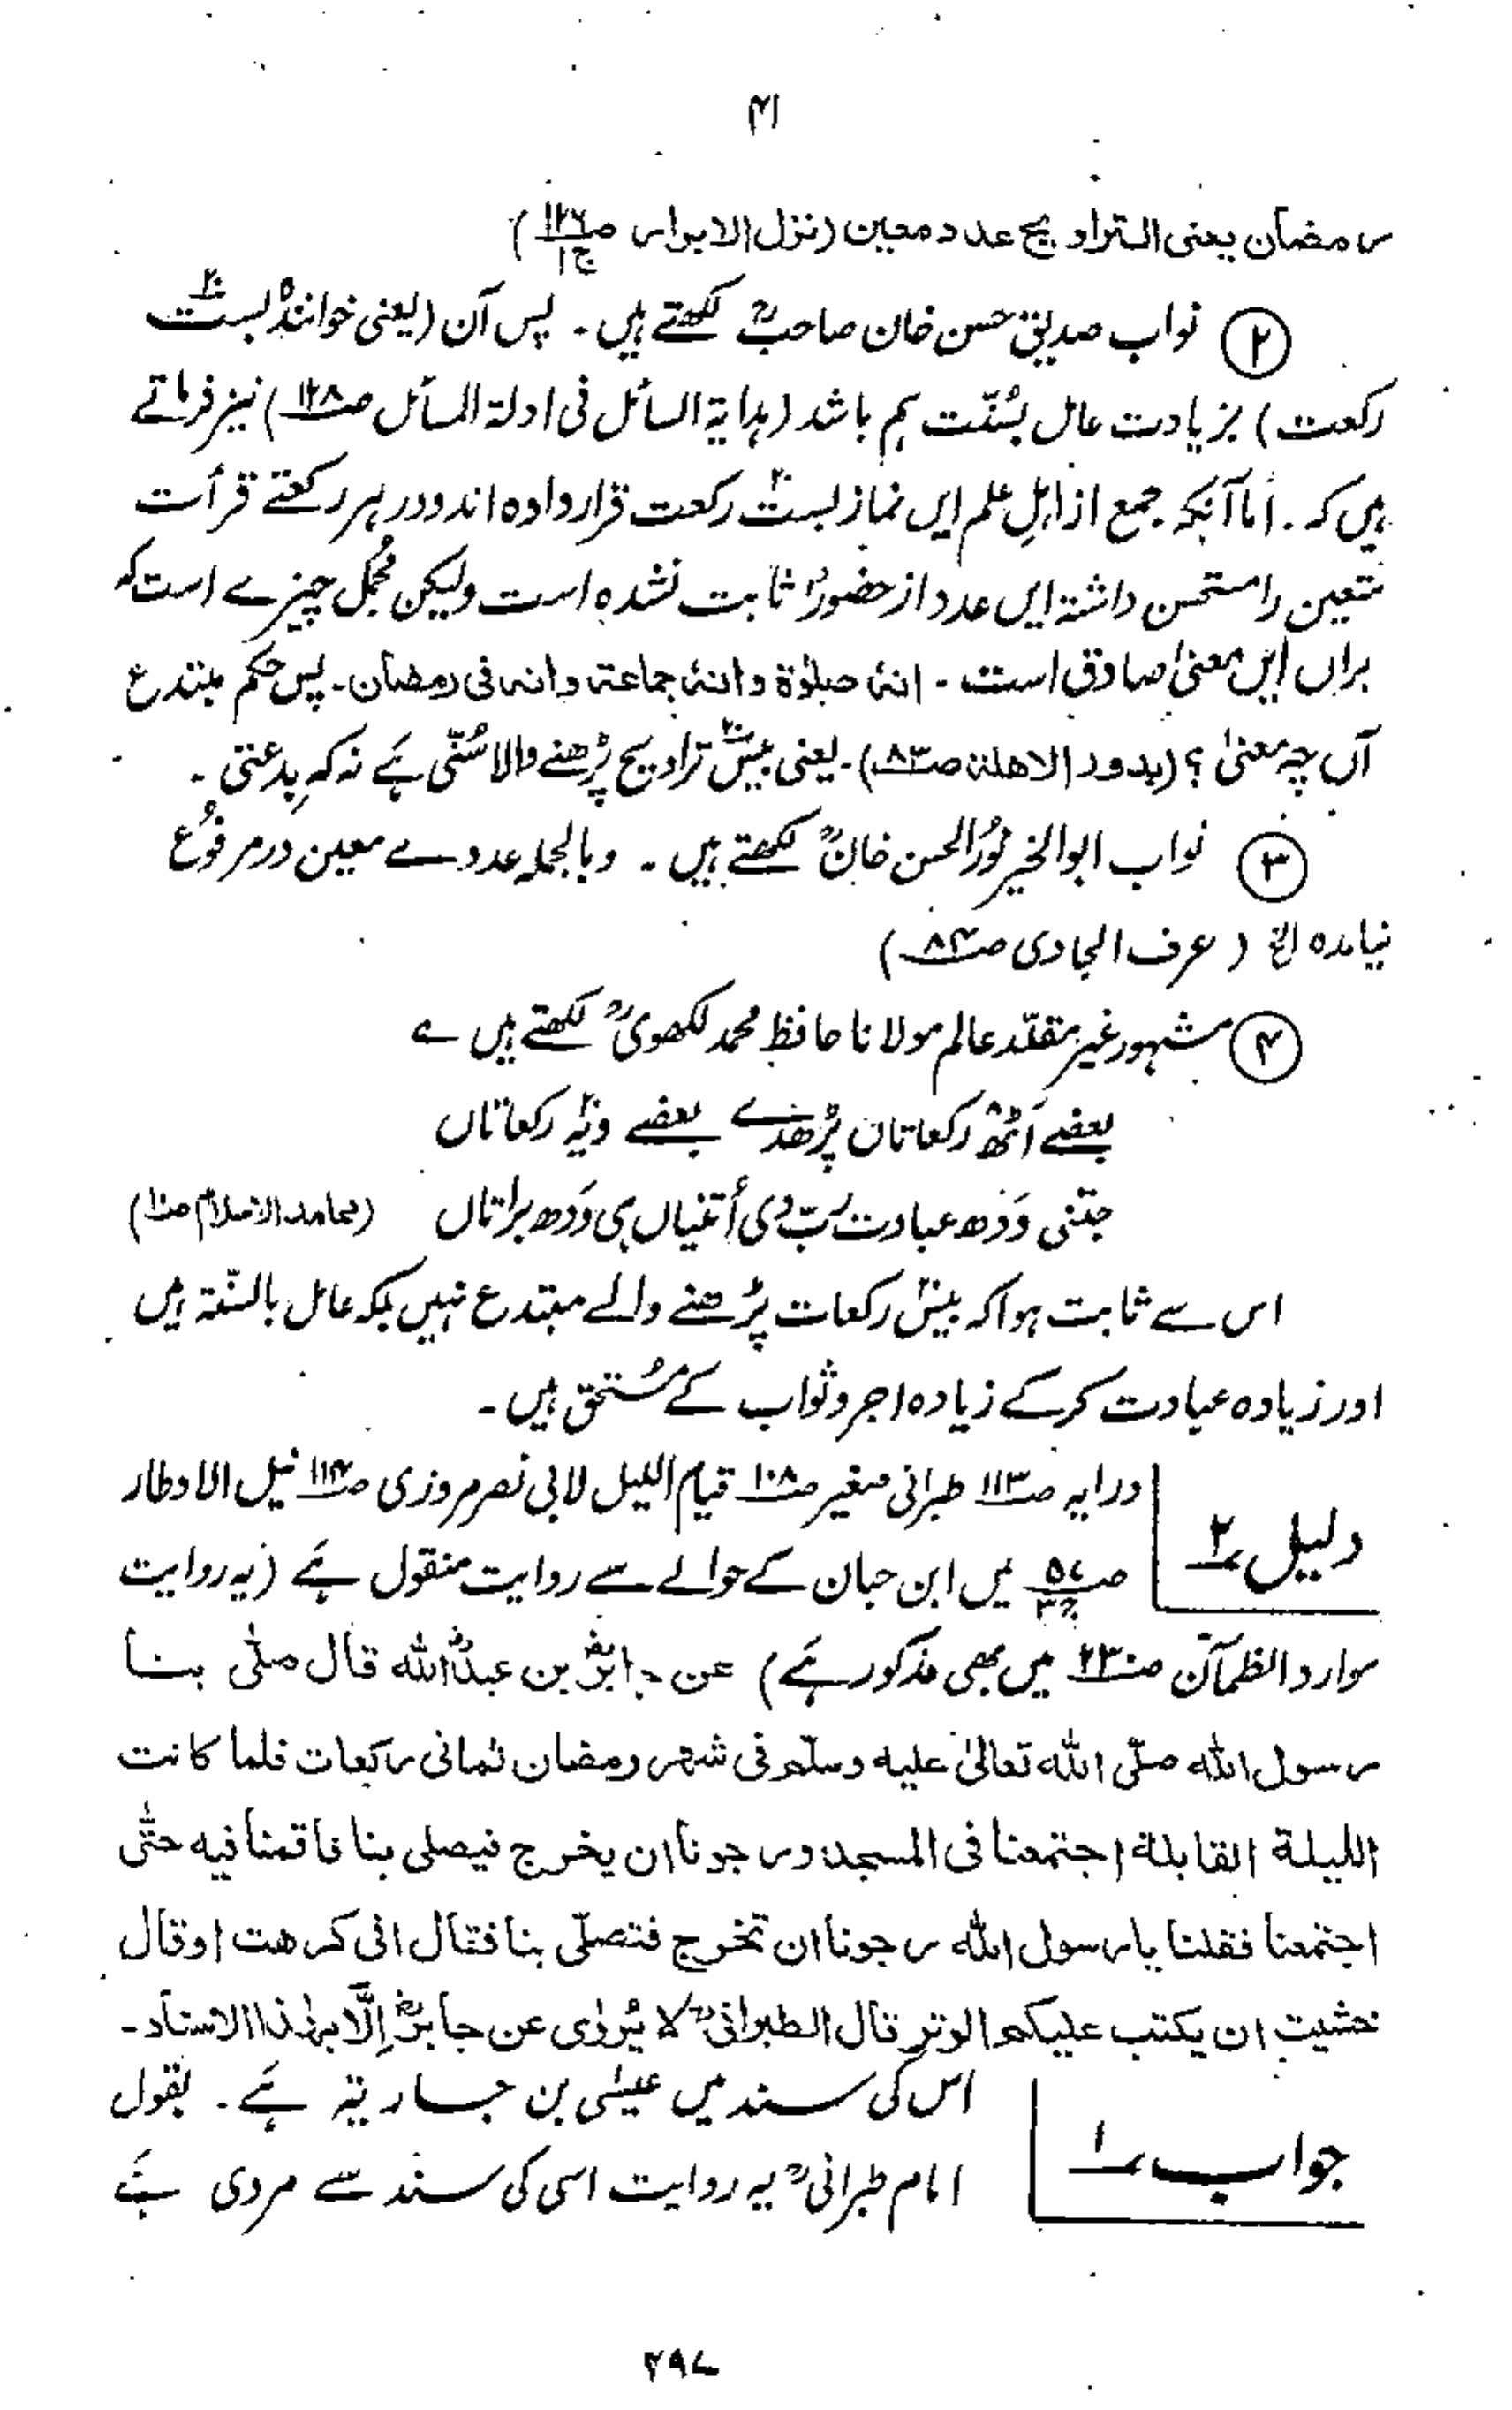 ۴۱
رمضان یعنی التراویح عدد معین (نزل الابرار ص۱۲۶ ج۱)
۲ نواب صدیق حسن خان صاحبؒ لکھتے ہیں۔ پس آن (یعنی خوانندہ بست۲۰
رکعت) بزیادت عامل بسُنّت ہم باشد (ہدایۃ السائل فی ادلۃ المسائل ص۱۳۸) نیز فرماتے
ہیں کہ۔ اما آنکہ جمع از اہلِ علم ایں نماز بست۲۰ رکعت قرار دادہ اند و در ہر رکعتے قرأت
متعین را مستحسن داشتہ ایں عدد از حضورؐ ثابت نشدہ است ولیکن مُجمل چیزے است کہ
براں ایں معنیٰ صادق است۔ انہٗ صلوٰۃ وانہٗ جماعۃ وانہ فی رمضان۔ پس حکم مبتدع
آں چہ معنیٰ؟ (بدور الاھلۃ ص۸۳)۔ یعنی بیس۲۰ تراویح پڑھنے والا سُنّی ہے نہ کہ بِدعتی۔
۳ نواب ابوالخیر نورُالحسن خانؒ لکھتے ہیں۔ وبالجملہ عددے معین در مرفُوع
نیامدہ الخ (عرف الجادی ص۸۴)
۴ مشہور غیر مقلّد عالم مولانا حافظ محمد لکھویؒ لکھتے ہیں ؎
بعضے اَٹھ۸ رکعاتاں پڑھدے بعضے ویہ۲۰ رکعاتاں
جتنی وَدھ عبادت رَبّ دی اُتنیاں ہی وَدھ براتاں (محامد الاسلام ص۱۰)
اس سے ثابت ہوا کہ بیس۲۰ رکعات پڑھنے والے مبتدع نہیں بلکہ عامل بالسنّۃ ہیں
اور زیادہ عبادت کر کے زیادہ اجر و ثواب کے مُستحق ہیں۔
دلیل ۲؎ درایہ ص۱۱۳ طبرانی صغیر ص۱۰۸ قیام اللیل لابی نصر مروزی ص۱۱۴ نیل الاوطار
ص۵۷ ج۳ میں ابن حبان کے حوالے سے روایت منقول ہے (یہ روایت
موارد الظمآن ص۲۳۰ میں بھی مذکور ہے) عن جابرؓ بن عبداللہؓ قال صلّٰی بنا
رسول اللہ صلّی اللہ تعالیٰ علیہ وسلّم فی شھر رمضان ثمانی رکعات فلما کانت
اللیلۃ القابلۃ اجتمعنا فی المسجد ورجونا ان یخرج فیصلی بنا فاقمنا فیہ حتّٰی
اجتمعنا فقلنا یا رسول اللہ رجونا ان تخرج فتصلّی بنا فقال انی کرھت او قال
خشیت ان یکتب علیکم الوتر قال الطبرانیؒ لا یُروٰی عن جابرؓ اِلّا بھٰذا الاسناد۔
جواب ۱؎ اس کی سند میں عیسٰی بن جاریۃ ہے۔ بقول
امام طبرانیؒ یہ روایت اسی کی سند سے مروی ہے
۲۹۷